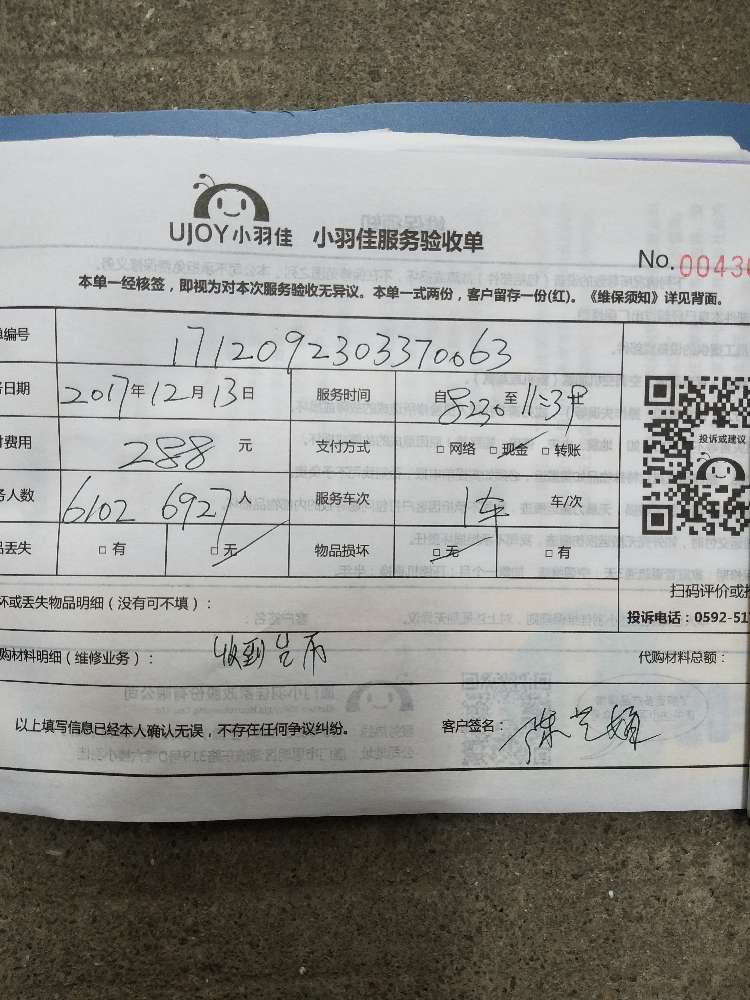 UJOY小羽佳 小羽佳服务验收单
No. 00436
本单一经核签，即视为对本次服务验收无异议。本单一式两份，客户留存一份(红)。《维保须知》详见背面。
单编号 1712092303370063
务日期 2017年12月13日 服务时间 自8:30至11:30
付费用 288元 支付方式 □ 网络 □ 现金 □ 转账
务人数 6102 6927人 服务车次 1车 车/次
品丢失 □ 有 □ 无 物品损坏 □ 无 □ 有
投诉或建议
扫码评价或投
坏或丢失物品明细（没有可不填）：
投诉电话：0592-517
购材料明细（维修业务）： 收到
代购材料总额：
以上填写信息已经本人确认无误，不存在任何争议纠纷。 客户签名：陈芝娟